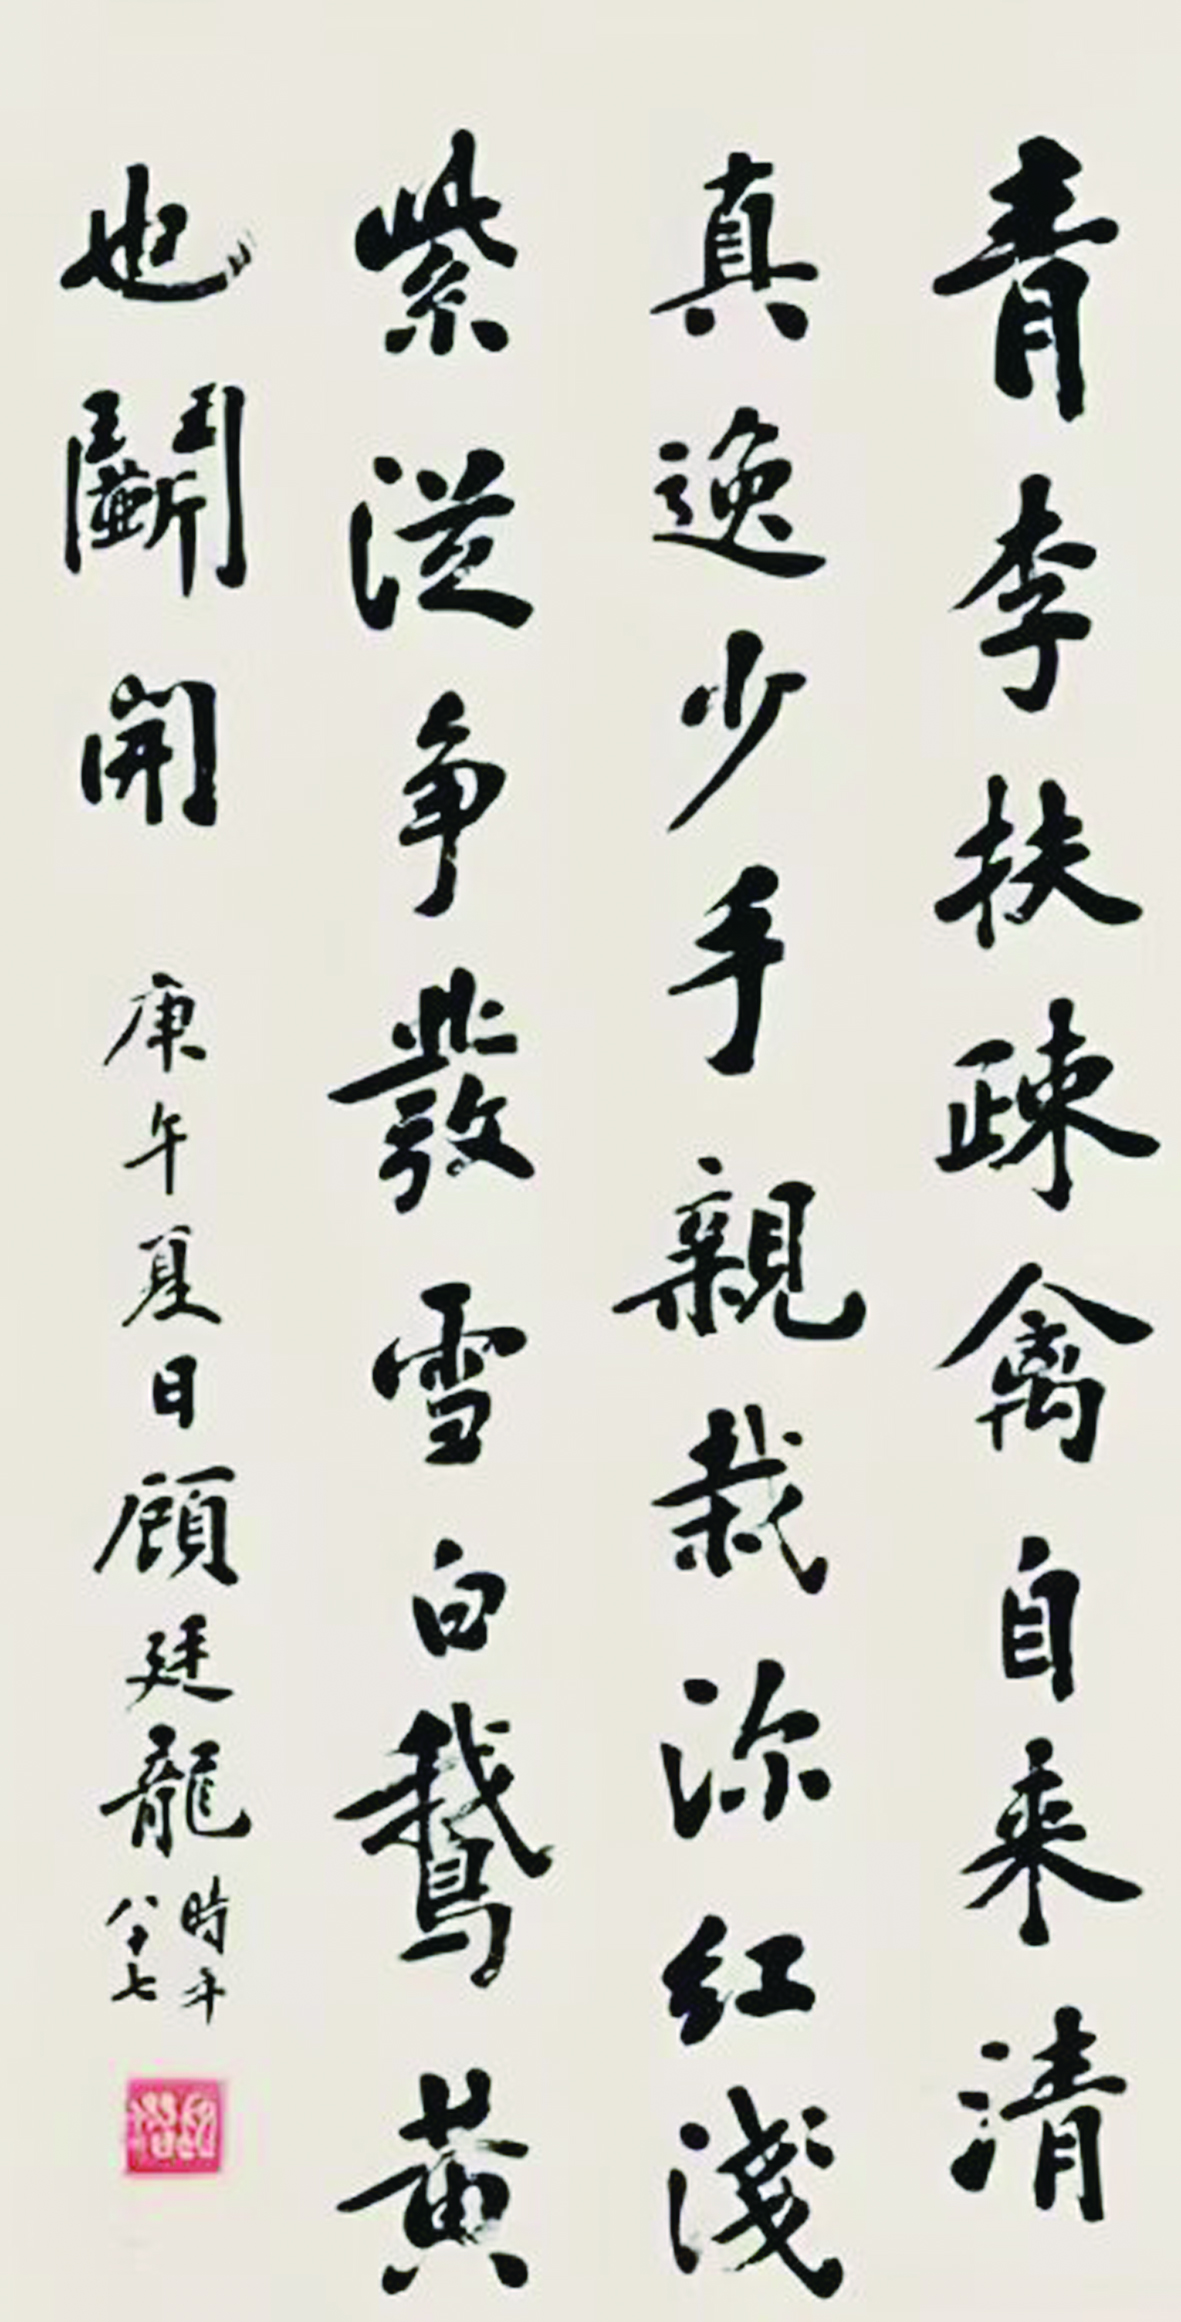 青李扶疎禽自来清
真逸少手親栽深红淺
紫從争發雪白鵝黄
也鬭開
庚午夏日顧廷龍
時年
八十七